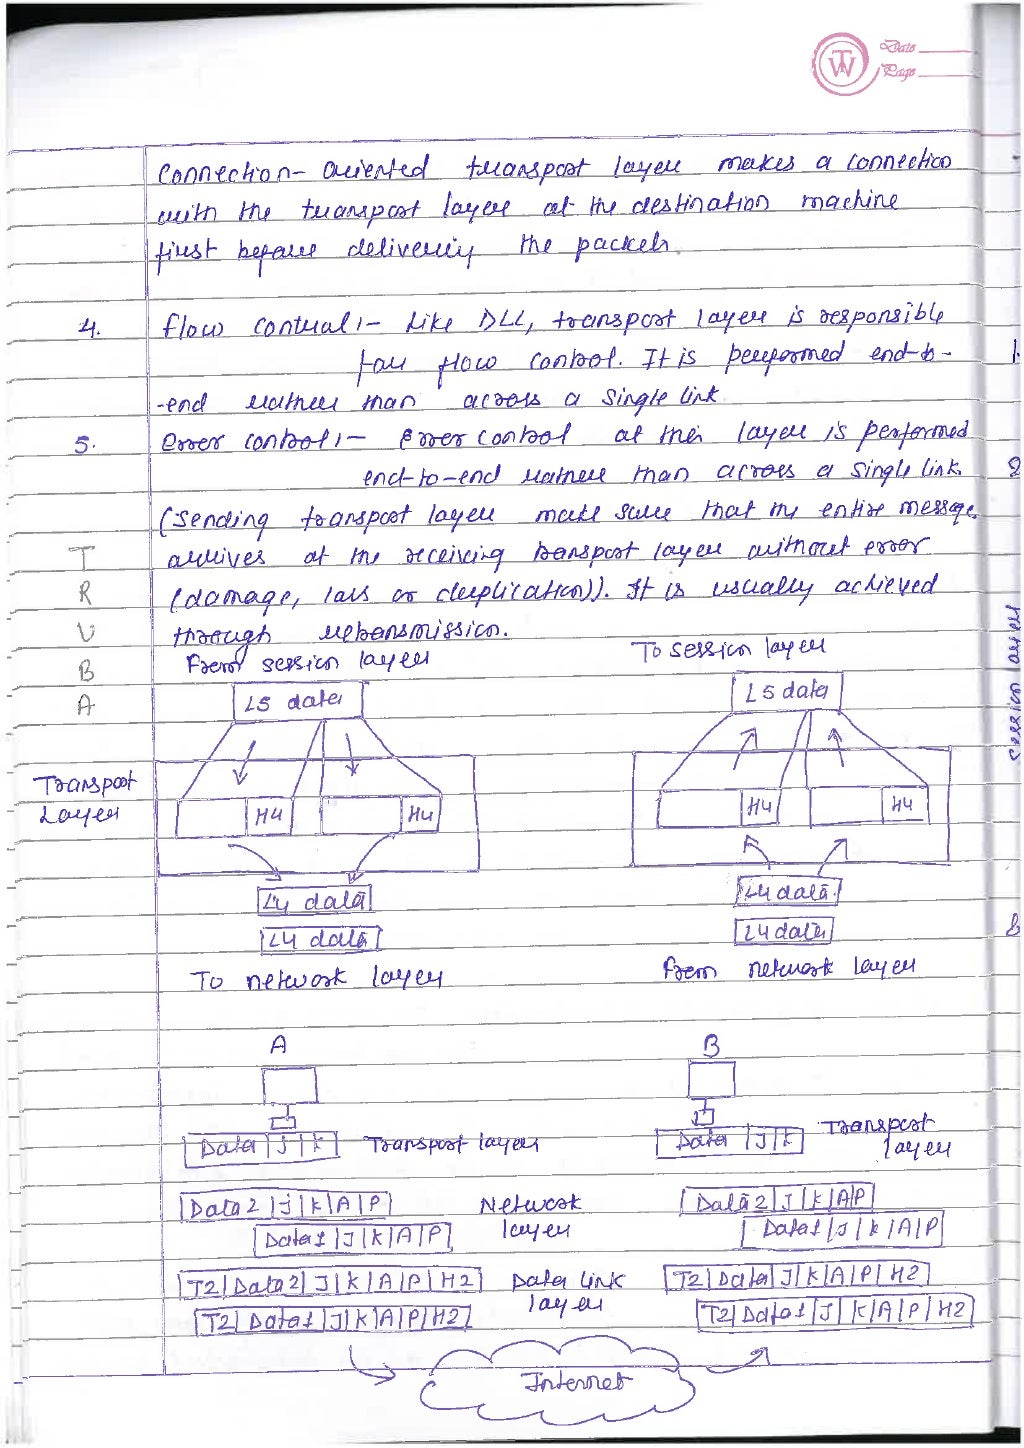 Date
Page
Connection-Oriented transport layer makes a connection
with the transport layer at the destination machine
first before delivering the packets.
4. Flow control:- Like DLL, transport layer is responsible
for flow control. It is performed end-to-
-end rather than across a single link
5. Error control:- Error control at this layer is performed
end-to-end rather than across a single link.
(Sending transport layer make sure that the entire message
arrives at the receiving transport layer without error
(damage, loss or duplication)). It is usually achieved
through retransmission.
T
R
U
B
A
From session layer To session layer
L5 data L5 data
Transport
Layer
H4 H4 H4 H4
L4 data L4 data
L4 data L4 data
To network layer From network layer
A B
Data J K Transport layer Data J K Transport
layer
Data2 J K A P Network Data2 J K A P
Data1 J K A P layer Data1 J K A P
T2 Data2 J K A P H2 Data Link T2 Data J K A P H2
T2 Data1 J K A P H2 layer T2 Data1 J K A P H2
Internet
1.
2
Session layer